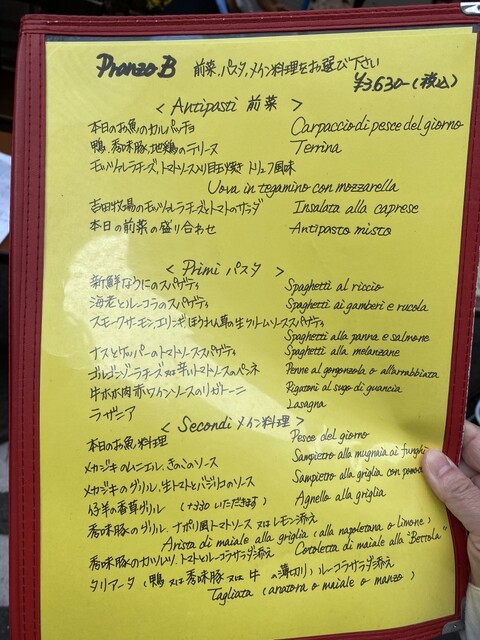 Pranzo B 前菜、パスタ、メイン料理をお選び下さい
¥3,630-(税込)
< Antipasti 前菜 >
本日のお魚のカルパッチョ Carpaccio di pesce del giorno
鴨、香味豚、地鶏のテリーヌ Terrina
モッツァレラチーズ、トマトソース入り目玉焼き トリュフ風味
Uova in tegamino con mozzarella
吉田牧場のモッツァレラチーズとトマトのサラダ Insalata alla caprese
本日の前菜の盛り合わせ Antipasto misto
< Primi パスタ >
新鮮なうにのスパゲティ Spaghetti al riccio
海老とルーコラのスパゲティ Spaghetti ai gamberi e rucola
スモークサーモン、エリンギ、ほうれん草の生クリームソーススパゲティ
Spaghetti alla panna e salmone
ナスとケッパーのトマトソーススパゲティ Spaghetti alla melanzane
ゴルゴンゾーラチーズ又は辛いトマトソースのペンネ Penne al gorgonzola o all'arrabbiata
牛ホホ肉赤ワインソースのリガトーニ Rigatoni al sugo di guancia
ラザニア Lasagna
< Secondi メイン料理 >
本日のお魚料理 Pesce del giorno
メカジキのムニエル、きのこのソース Sampietro alla mugnaia ai funghi
メカジキのグリル、生トマトとバジリコのソース Sampietro alla griglia con
仔羊の香草グリル (+330 いただきます) Agnello alla griglia
香味豚のグリル、ナポリ風トマトソース 又はレモン添え
Arista di maiale alla griglia (alla napoletana o limone)
香味豚のカツレツ、トマトとルーコラサラダ添え Cotoletta di maiale alla "Bettola"
タリアータ (鴨 又は 香味豚 又は 牛 の薄切り) ルーコラサラダ添え
Tagliata (anatra o maiale o manzo)